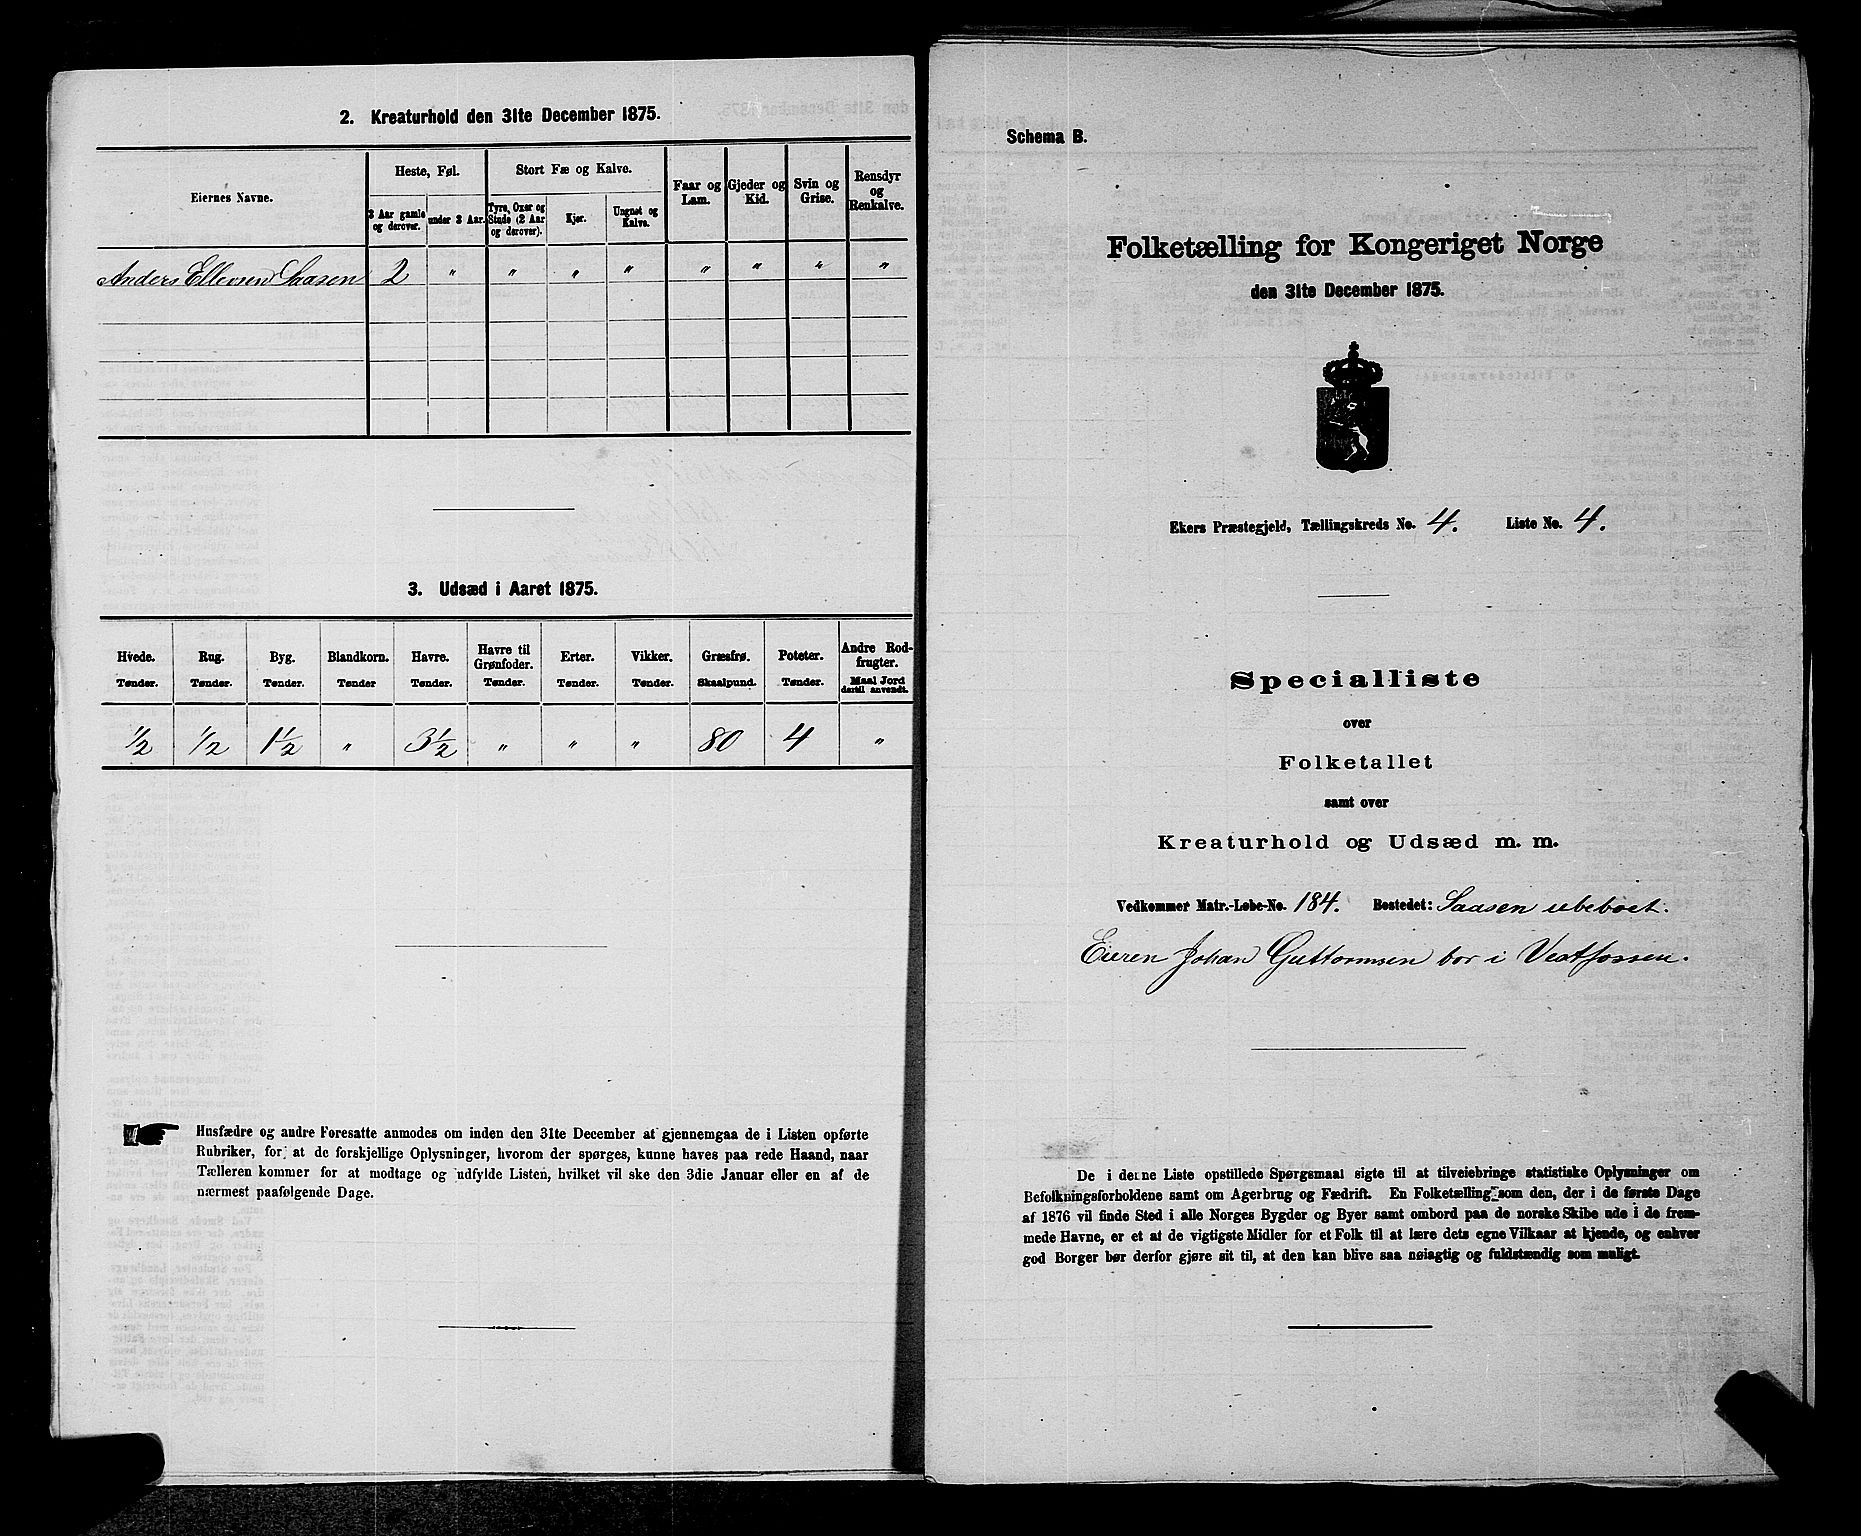 2. Kreaturhold den 31te December 1875.
Eiernes Navne.
Heste, Føl.
Stort Fæ og Kalve.
Faar og Lam.
Gjeder og Kid.
Svin og Grise.
Rensdyr og Renkalve.
3 Aar gamle og derover.
under 3 Aar.
Tyre, Oxer og Stude (2 Aar og derover).
Kjør.
Ungnøt og Kalve.
Anders Ellevsen Saasen 2 " " " " " " " "
3. Udsæd i Aaret 1875.
Hvede. Rug. Byg. Blandkorn. Havre. Havre til Grønfoder. Erter. Vikker. Græsfrø. Poteter. Andre Rodfrugter.
Tønder. Tønder. Tønder. Tønder Tønder. Tønder. Tønder. Tønder. Skaalpund. Tønder. Maal Jord dertil anvendt.
1/2 1/2 1 1/2 " 3 1/2 " " " 80 4 "
Husfædre og andre Foresatte anmodes om inden den 31te December at gjennemgaa de i Listen opførte
Rubriker, for at de forskjellige Oplysninger, hvorom der spørges, kunne haves paa rede Haand, naar
Tælleren kommer for at modtage og udfylde Listen, hvilket vil ske den 3die Januar eller en af de
nærmest paafølgende Dage.
Schema B.
Folketælling for Kongeriget Norge
den 31te December 1875.
Ekers Præstegjeld, Tællingskreds No. 4. Liste No. 4.
Specialliste
over
Folketallet
samt over
Kreaturhold og Udsæd m. m.
Vedkommer Matr.-Løbe-No. 184. Bostedet: Saasen ubeboet.
Eieren Johan Guttormsen bor i Vestfossen.
De i denne Liste opstillede Spørgsmaal sigte til at tilveiebringe statistiske Oplysninger om
Befolkningsforholdene samt om Agerbrug og Fædrift. En Folketælling som den, der i de første Dage
af 1876 vil finde Sted i alle Norges Bygder og Byer samt ombord paa de norske Skibe ude i de frem-
mede Havne, er et af de vigtigste Midler for et Folk til at lære dets egne Vilkaar at kjende, og enhver
god Borger bør derfor gjøre sit til, at den kan blive saa nøiagtig og fuldstændig som muligt.